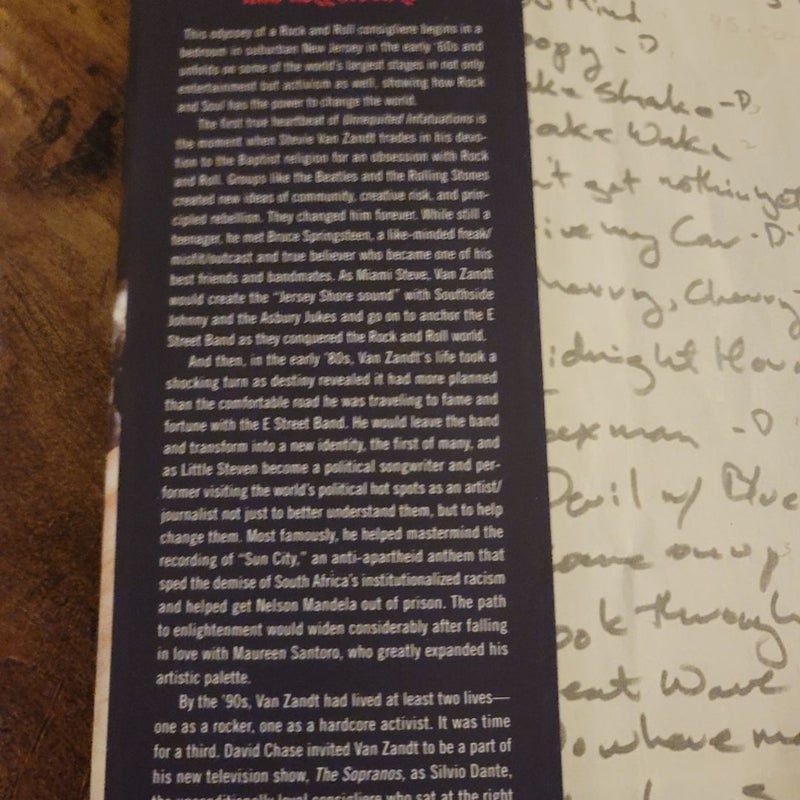 This odyssey of a Rock and Roll consigliere begins in a
bedroom in suburban New Jersey in the early '60s and
unfolds on some of the world's largest stages in not only
entertainment but activism as well, showing how Rock
and Soul has the power to change the world.
The first true heartbeat of Unrequited Infatuations is
the moment when Stevie Van Zandt trades in his devo-
tion to the Baptist religion for an obsession with Rock
and Roll. Groups like the Beatles and the Rolling Stones
created new ideas of community, creative risk, and prin-
cipled rebellion. They changed him forever. While still a
teenager, he met Bruce Springsteen, a like-minded freak/
misfit/outcast and true believer who became one of his
best friends and bandmates. As Miami Steve, Van Zandt
would create the "Jersey Shore sound" with Southside
Johnny and the Asbury Jukes and go on to anchor the E
Street Band as they conquered the Rock and Roll world.
And then, in the early '80s, Van Zandt's life took a
shocking turn as destiny revealed it had more planned
than the comfortable road he was traveling to fame and
fortune with the E Street Band. He would leave the band
and transform into a new identity, the first of many, and
as Little Steven become a political songwriter and per-
former visiting the world's political hot spots as an artist/
journalist not just to better understand them, but to help
change them. Most famously, he helped mastermind the
recording of "Sun City," an anti-apartheid anthem that
sped the demise of South Africa's institutionalized racism
and helped get Nelson Mandela out of prison. The path
to enlightenment would widen considerably after falling
in love with Maureen Santoro, who greatly expanded his
artistic palette.
By the '90s, Van Zandt had lived at least two lives—
one as a rocker, one as a hardcore activist. It was time
for a third. David Chase invited Van Zandt to be a part of
his new television show, The Sopranos, as Silvio Dante,
the unconditionally loyal consigliere who sat at the right
oopy - D
ake Shake - D
ake Wake
n't get nothin yet
ive my Car - D
herry, Cherry
idnight Hou
ex man - D
Devil w/ Blue
ome on up
ook through
eat Wave
o where